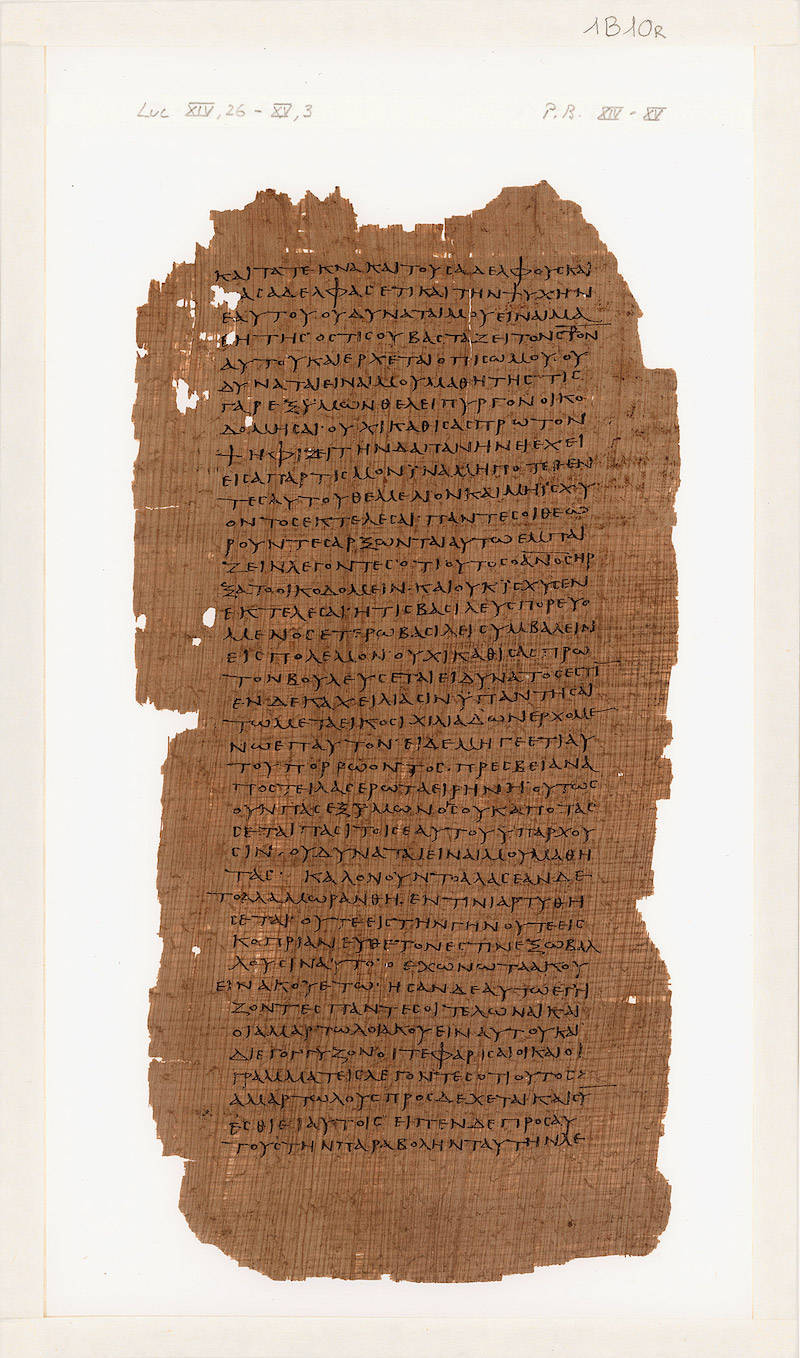 1B10R
Luc XIV, 26 - XV, 3
P.B. XIV - XV
ΚΑΙΤΑΤΕΚΝΑΚΑΙΤΟΥϹΑΔΕΛΦΟΥϹΚΑΙ
ΑϹΑΔΕΛΦΑϹΕΤΙΚΑΙΤΗΝΨΥΧΗΝ
ΕΑΥΤΟΥ·ΟΥΔΥΝΑΤΑΙΜΟΥΕΙΝΑΙΜΑ
ΘΗΤΗϹ·ΟϹΤΙϹΟΥΒΑϹΤΑΖΕΙΤΟΝϹ⳨ΟΝ
ΑΥΤΟΥΚΑΙΕΡΧΕΤΑΙΟΠΙϹΩΜΟΥ·ΟΥ
ΔΥΝΑΤΑΙΕΙΝΑΙΜΟΥΜΑΘΗΤΗϹ·ΤΙϹ
ΓΑΡΕΞΥΜΩΝΘΕΛΕΙΠΥΡΓΟΝΟΙΚΟ
ΔΟΜΗϹΑΙ·ΟΥΧΙΚΑΘΙϹΑϹΠΡΩΤΟΝ
ΨΗΦΙΖΕΙΤΗΝΔΑΠΑΝΗΝΕΙΕΧΕΙ
ΕΙϹΑΠΑΡΤΙϹΜΟΝΙΝΑΜΗΠΟΤΕΘΕΝ
ΤΕϹΑΥΤΟΥΘΕΜΕΛΙΟΝΚΑΙΜΗΙϹΧΥ
ΟΝΤΟϹΕΚΤΕΛΕϹΑΙ·ΠΑΝΤΕϹΟΙΘΕΩ
ΡΟΥΝΤΕϹΑΡΞΩΝΤΑΙΑΥΤΩΕΜΠΑΙ
ΖΕΙΝΛΕΓΟΝΤΕϹ·ΟΤΙΟΥΤΟϹΟΑΝΟϹΗΡ
ΞΑΤΟΟΙΚΟΔΟΜΕΙΝ·ΚΑΙΟΥΚΙϹΧΥϹΕΝ
ΕΚΤΕΛΕϹΑΙ·ΗΤΙϹΒΑϹΙΛΕΥϹΠΟΡΕΥΟ
ΜΕΝΟϹΕΤΕΡΩΒΑϹΙΛΕΙϹΥΜΒΑΛΕΙΝ
ΕΙϹΠΟΛΕΜΟΝ·ΟΥΧΙΚΑΘΙϹΑϹΠΡΩ
ΤΟΝΒΟΥΛΕΥϹΕΤΑΙΕΙΔΥΝΑΤΟϹΕϹΤΙ
ΕΝΔΕΚΑΧΕΙΛΙΑϹΙΝΥΠΑΝΤΗϹΑΙ
ΤΩΜΕΤΑΕΙΚΟϹΙΧΙΛΙΑΔΩΝΕΡΧΟΜΕ
ΝΩΕΠΑΥΤΟΝ·ΕΙΔΕΜΗΓΕΕΤΙΑΥ
ΤΟΥΠΟΡΡΩΟΝΤΟϹ·ΠΡΕϹΒΕΙΑΝΑ
ΠΟϹΤΕΙΛΑϹΕΡΩΤΑΕΙΡΗΝΗ·ΟΥΤΩϹ
ΟΥΝΠΑϹΕΞΥΜΩΝΟϹΟΥΚΑΠΟΤΑϹ
ϹΕΤΑΙΠΑϹΙΤΟΙϹΕΑΥΤΟΥΥΠΑΡΧΟΥ
ϹΙΝ·ΟΥΔΥΝΑΤΑΙΕΙΝΑΙΜΟΥΜΑΘΗ
ΤΑϹ· ΚΑΛΟΝΟΥΝΤΟΑΛΑϹΕΑΝΔΕ
ΤΟΑΛΑΜΩΡΑΝΘΗ·ΕΝΤΙΝΙΑΡΤΥΘΗ
ϹΕΤΑΙ·ΟΥΤΕΕΙϹΤΗΝΓΗΝΟΥΤΕΕΙϹ
ΚΟΠΡΙΑΝΕΥΘΕΤΟΝΕϹΤΙΝΕΞΩΒΑΛ
ΛΟΥϹΙΝΑΥΤΟ·ΟΕΧΩΝΩΤΑΑΚΟΥ
ΕΙΝΑΚΟΥΕΤΩ·ΗϹΑΝΔΕΑΥΤΩΕΓΓΙ
ΖΟΝΤΕϹΠΑΝΤΕϹΟΙΤΕΛΩΝΑΙΚΑΙ
ΟΙΑΜΑΡΤΩΛΟΙΑΚΟΥΕΙΝΑΥΤΟΥΚΑΙ
ΔΙΕΓΟΓΓΥΖΟΝΟΙΤΕΦΑΡΙϹΑΙΟΙΚΑΙΟΙ
ΓΡΑΜΜΑΤΕΙϹΛΕΓΟΝΤΕϹΟΤΙΟΥΤΟϹ
ΑΜΑΡΤΩΛΟΥϹΠΡΟϹΔΕΧΕΤΑΙΚΑΙϹΥ
ΕϹΘΙΕΙΑΥΤΟΙϹ ΕΙΠΕΝΔΕΠΡΟϹΑΥ
ΤΟΥϹΤΗΝΠΑΡΑΒΟΛΗΝΤΑΥΤΗΝΛΕ